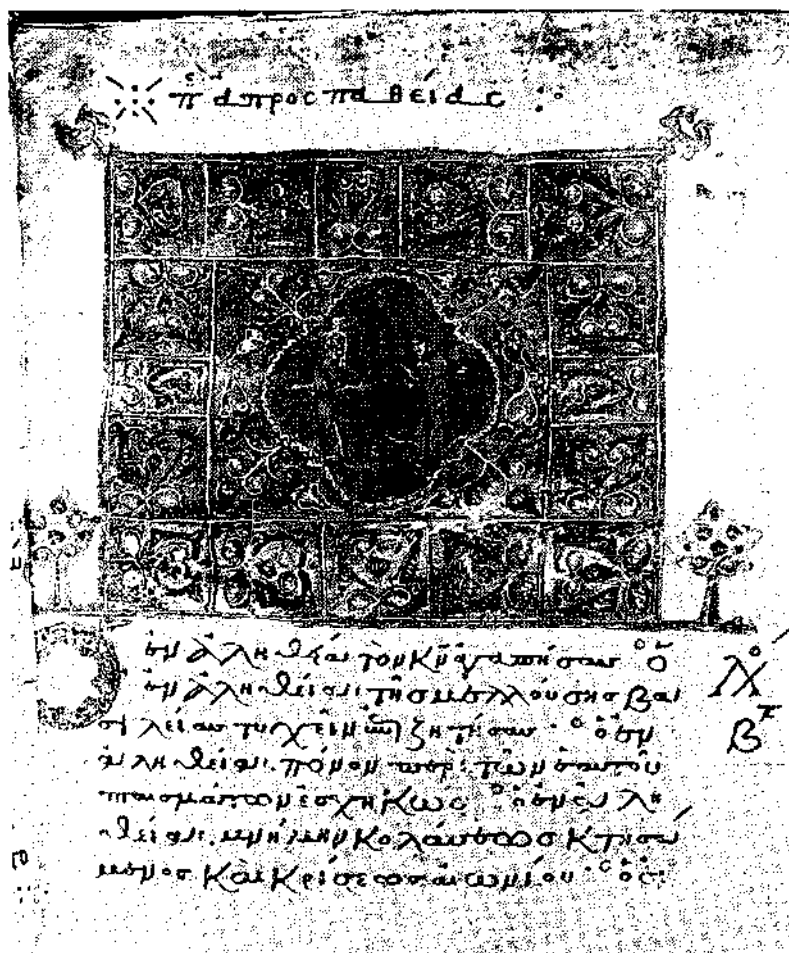 π ἀπροσπαθείας
ἐν ἀληθείαι τὸν κν ἀγαπήσας · ὁ
ἐν ἀληθείαι τῆς μελλούσης βα
σιλείας τυχεῖν ζητήσας · ὁ ἐν
ἀληθείαι πόνον περὶ τῶν ἑαυτοῦ
πταισμάτων ἐσχηκώς · ὁ ἐν ἀλη
θείαι μνήμην κολάσεως κτησά
μενος καὶ κρίσεως αἰωνίου · ὁ
λό
β